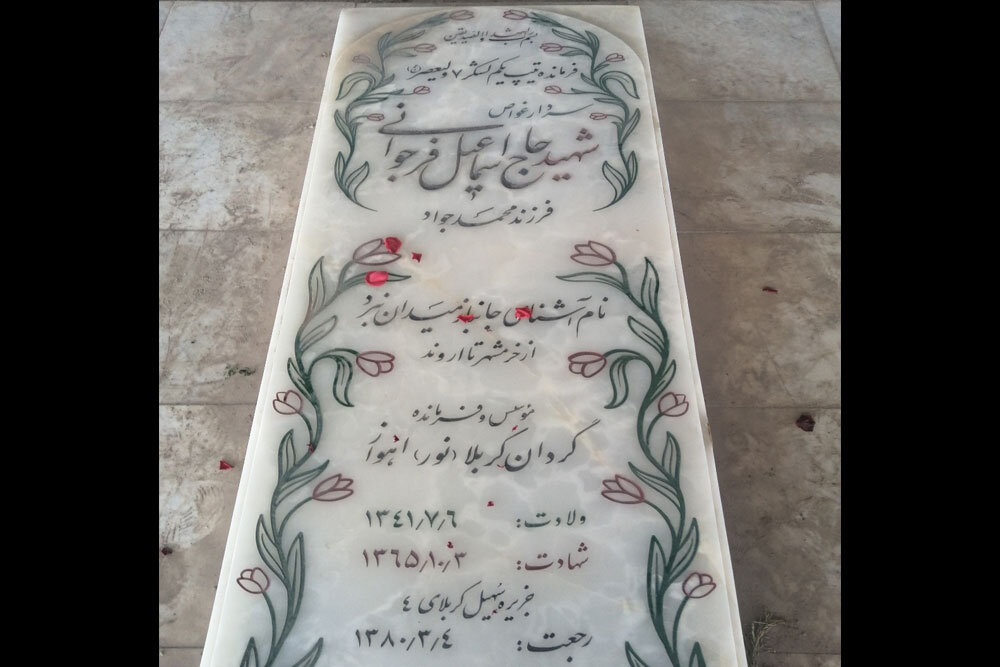 بسم رب الشهداء و الصدیقین
فرمانده تیپ یکم لشکر ۷ ولیعصر (عج)
سردار غواص
شهید حاج اسماعیل فرجوانی
فرزند محمد جواد
نام آشنای جانباز میدان نبرد
از خرمشهر تا اروند
مؤسس و فرمانده
گردان کربلا (نور) اهواز
ولادت: ۱۳۴۱/۷/۶
شهادت: ۱۳۶۵/۱۰/۳
جزیره سهیل کربلای ۴
رجعت: ۱۳۸۰/۳/۴